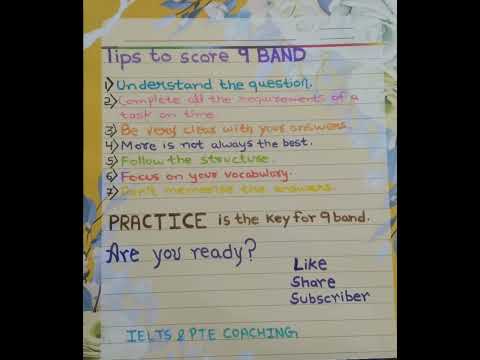 Tips to score 9 BAND
1) Understand the question.
2) Complete all the requirements of a
task on time
3) Be very clear with your answers.
4) More is not always the best.
5) Follow the structure.
6) Focus on your vocabulary.
7) Don't memorise the answers.
PRACTICE is the key for 9 band.
Are you ready?
Like
Share
Subscriber
IELTS & PTE COACHING